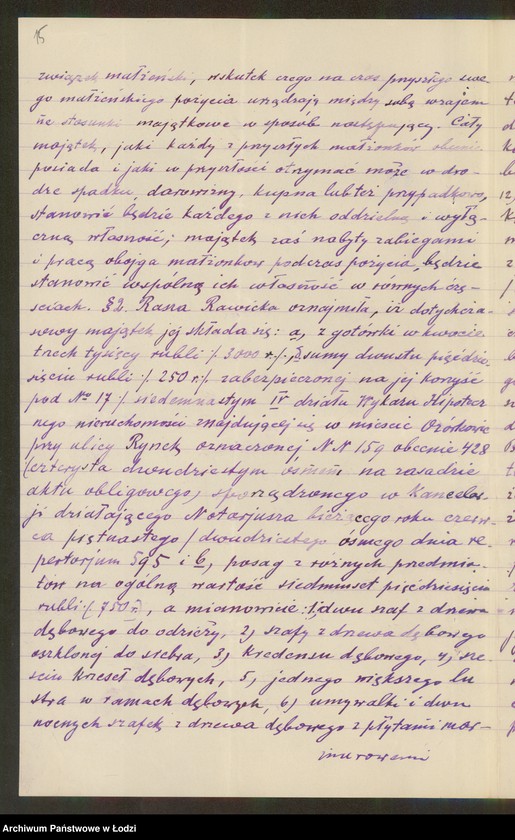 15
związek małżeński, wskutek czego na czas przyszłego swe-
go małżeńskiego pożycia urządzają między sobą wzajem
ne stosunki majątkowe w sposób następujący. Cały
majątek, jaki każdy z przyszłych małżonków obecnie
posiada i jaki w przyszłości otrzymać może w dro-
dze spadku, darowizny, kupna lub też przypadkowo,
stanowić będzie każdego z nich oddzielną i wyłą-
czną własność; majątek zaś nabyty zabiegami
i pracą obojga małżonków podczas pożycia, będzie
stanowić wspólną ich własność w równych czę-
ściach. § 2. Rasza Rawicka oznajmiła, iż dotychcza-
sowy majątek jej składa się: a, z gotówki w kwocie
trzech tysięcy rubli /. 3000 r./. sumy dwustu pięćdzie
sięciu rubli /. 250 r./. zabezpieczonej na jej korzyść
pod No 17 / siedemnastym IV działu Wykazu Hipotecz
nego nieruchomości znajdującej się w mieście Ozorkowie
przy ulicy Rynek oznaczonej NN 159 obecnie 428
/czterysta dwudziestym ósmym na zasadzie
aktu obligowego, sporządzonego w Kancelar-
ji działającego Notarjusza bieżącego roku czerw-
ca piętnastego / dwudziestego ósmego dnia re-
pertorjum 595 i b, posag z różnych przedmio-
tów na ogólną wartość siedmiuset pięćdziesięciu
rubli /. 750 r./, a mianowicie: 1, dwu szaf z drzewa
dębowego do odzieży, 2) szafy z drzewa dębowego
oszklonej do srebra, 3) kredensu dębowego, 4) sze-
ściu krzeseł dębowych, 5) jednego większego lu
stra w ramach dębowych, 6) umywalki i dwu
nocnych szafek z drzewa dębowego z płytami mar-
murowemi
Archiwum Państwowe w Łodzi